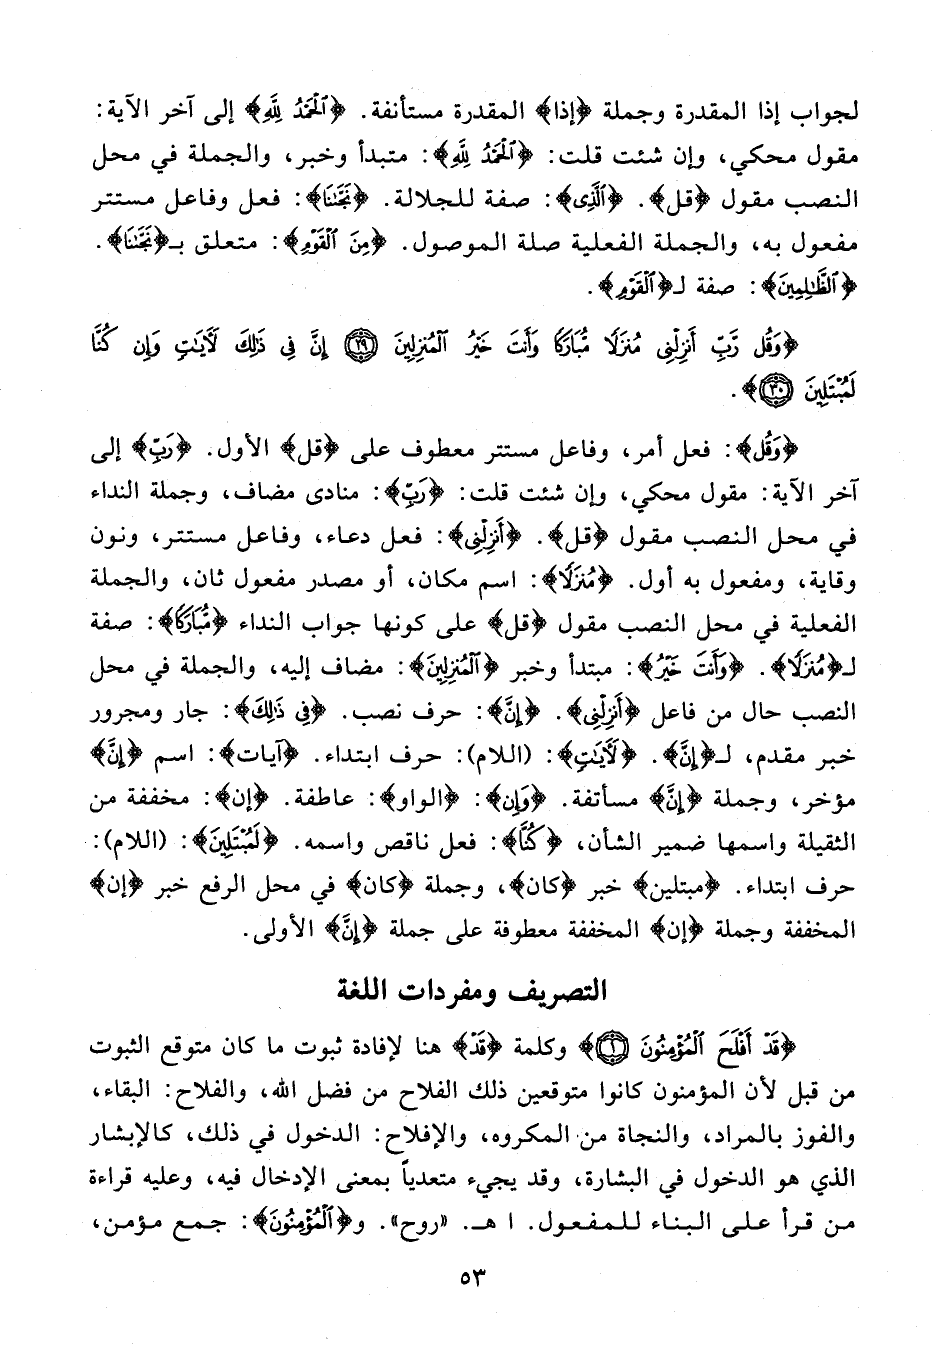 لجواب إذا المقدرة وجملة ﴿إذا﴾ المقدرة مستأنفة. ﴿ٱلْحَمْدُ لِلَّهِ﴾ إلى آخر الآية:
مقول محكي، وإن شئت قلت: ﴿ٱلْحَمْدُ لِلَّهِ﴾: متبدأ وخبر، والجملة في محل
النصب مقول ﴿قل﴾. ﴿ٱلَّذِى﴾: صفة للجلالة. ﴿نَجَّىٰنَا﴾: فعل وفاعل مستتر
مفعول به، والجملة الفعلية صلة الموصول. ﴿مِنَ ٱلْقَوْمِ﴾: متعلق بـ﴿نَجَّىٰنَا﴾.
﴿ٱلظَّٰلِمِينَ﴾: صفة لـ﴿ٱلْقَوْمِ﴾.
﴿وَقُل رَّبِّ أَنزِلْنِى مُنزَلًا مُّبَارَكًا وَأَنتَ خَيْرُ ٱلْمُنزِلِينَ ٢٩ إِنَّ فِى ذَٰلِكَ لَـَٔايَـٰتٍ وَإِن كُنَّا
لَمُبْتَلِينَ ٣٠﴾.
﴿وَقُل﴾: فعل أمر، وفاعل مستتر معطوف على ﴿قل﴾ الأول. ﴿رَّبِّ﴾ إلى
آخر الآية: مقول محكي، وإن شئت قلت: ﴿رَّبِّ﴾: منادى مضاف، وجملة النداء
في محل النصب مقول ﴿قل﴾. ﴿أَنزِلْنِى﴾: فعل دعاء، وفاعل مستتر، ونون
وقاية، ومفعول به أول. ﴿مُنزَلًا﴾: اسم مكان، أو مصدر مفعول ثان، والجملة
الفعلية في محل النصب مقول ﴿قل﴾ على كونها جواب النداء ﴿مُّبَارَكًا﴾: صفة
لـ﴿مُنزَلًا﴾. ﴿وَأَنتَ خَيْرُ﴾: مبتدأ وخبر ﴿ٱلْمُنزِلِينَ﴾: مضاف إليه، والجملة في محل
النصب حال من فاعل ﴿أَنزِلْنِى﴾. ﴿إِنَّ﴾: حرف نصب. ﴿فِى ذَٰلِكَ﴾: جار ومجرور
خبر مقدم، لـ﴿إِنَّ﴾. ﴿لَـَٔايَـٰتٍ﴾: (اللام): حرف ابتداء. ﴿آيات﴾: اسم ﴿إِنَّ﴾
مؤخر، وجملة ﴿إِنَّ﴾ مسأتفة. ﴿وَإِن﴾: ﴿الواو﴾: عاطفة. ﴿إن﴾: مخففة من
الثقيلة واسمها ضمير الشأن، ﴿كُنَّا﴾: فعل ناقص واسمه. ﴿لَمُبْتَلِينَ﴾: (اللام):
حرف ابتداء. ﴿مبتلين﴾ خبر ﴿كان﴾، وجملة ﴿كان﴾ في محل الرفع خبر ﴿إن﴾
المخففة وجملة ﴿إن﴾ المخففة معطوفة على جملة ﴿إِنَّ﴾ الأولى.
التصريف ومفردات اللغة
﴿قَدْ أَفْلَحَ ٱلْمُؤْمِنُونَ ١﴾ وكلمة ﴿قَدْ﴾ هنا لإفادة ثبوت ما كان متوقع الثبوت
من قبل لأن المؤمنون كانوا متوقعين ذلك الفلاح من فضل الله، والفلاح: البقاء،
والفوز بالمراد، والنجاة من المكروه، والإفلاح: الدخول في ذلك، كالإبشار
الذي هو الدخول في البشارة، وقد يجيء متعدياً بمعنى الإدخال فيه، وعليه قراءة
من قرأ على البناء للمفعول. ا هـ. «روح». و﴿ٱلْمُؤْمِنُونَ﴾: جمع مؤمن،
٥٣